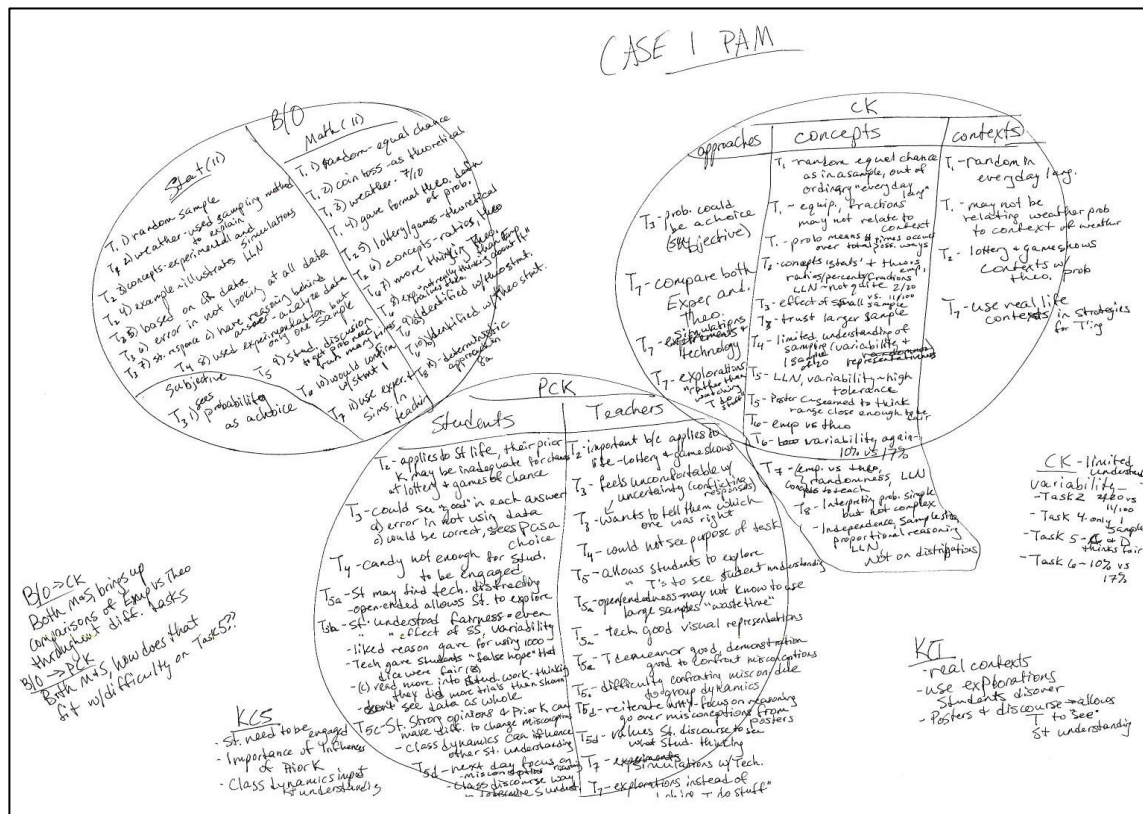 CASE 1 PAM
B/O
Stat (11)
T1 1) random-sample
T1 2) weather-used sampling method to explain
T2 3) concepts-experimental and simulations
T2 4) example illustrates LLN
T3 5) based on data
T3 6) error in not looking at all data
T3 7) St. response c) have reasoning behind answer-analyze data
T4 8) used experimentation but only one sample
T5 9) stud. discussion
run many
T6 10) would confirm w/stmt 1
T7 11) use exper. + sims. in teaching
Subjective
T3 1) sees probability as a choice
Math (11)
T1 1) random-equal chance
T1 2) coin toss-as theoretical
T1 3) weather. 7/10
T1 4) gave formal theo. defn of prob.
T2 5) lottery/games-theoretical
T2 6) concepts-ratios, theo
identified w/theo stmt.
deterministic approach
CK
approaches
T3 - prob. could be a choice (subjective)
T7 - compare both Exper and. Theo.
T7 - simulations & technology
T7 - explorations "rather than watching T do stuff"
concepts
T1 - random equal chance as in a sample, out of ordinary "everyday lang"
T1 - equip, fractions may not relate to context
T1 - prob means # times occur over total poss. ways
T2 - concepts "stats" + theo → ratios/percents/fractions emp.
LLN - not quite 2/20 vs. 11/100
T3 - effect of small sample
T3 - trust larger sample
T4 - limited understanding of sampling (variability &
1 sample of 20
T5 - LLN, variability - high tolerance
T5 - Poster C - seemed to think range close enough to be fair
T6 - emp vs theo
T6 - variability again - 10% vs 17%
T7 - (emp. vs theo, randomness, LLN
concepts to teach
T8 - Interpreting prob. simple but not complex
- Independence, sample size, proportional reasoning
LLN,
Not on distributions
contexts
T1 - random in everyday lang.
T1 - may not be relating weather prob to context of weather
T2 - lottery & gameshows contexts w/ theo. prob
T7 - use real life contexts in strategies for T'ing
PCK
Students
T2 - applies to St life, their prior K may be inadequate for chance at lottery & games of chance
T3 - could see "good" in each answer
a) error in not using data
c) could be correct, sees P as a choice
T4 - candy not enough for stud. to be engaged
T5a - St may find tech. distracting
open-ended allows St. to explore
T5b - St. understood fairness - even
" " effect of SS, variability
- liked reason gave for using 1000
- Tech gave students "false hope" that dice were fair (B)
- (c) read more into stud. work - thinking they did more trials than shown
- don't see data as whole
T5c - St. Strong opinions & Prior K can make diff. to change misconceptions
- Class dynamics can influence other St. understanding
T5d - next day focus on
- class discourse way
Teachers
T2 - important b/c applies to life - lottery & gameshows
T3 - feels uncomfortable w/ uncertainty (conflicting responses)
T3 - wants to tell them which one was right
T4 - could not see purpose of task
T5 - allows students to explore
" T's to see student understanding
T5a - openendedness - may not know to use large samples "waste time"
T5a - tech good visual representations
T5c - T demeanor good, demonstration good to confront misconceptions
T5c - difficulty confronting miscon. due to group dynamics
T5d - reiterate why - focus on reasoning
go over misconceptions from posters
T5d - values St. discourse to see what stud. thinking
T7 - simulations w/Tech.
T7 - explorations instead of
T do stuff"
B/O → CK
Both M+S, brings up comparisons of Emp vs Theo throughout diff. tasks
B/O → PCK
Both M+S, how does that fit w/difficulty on Task 5??
KCS
- St. need to be engaged
- Importance of & Influence of Prior K
- Class dynamics impact understanding
CK - limited understand
variability -
- Task 2 2/20 vs 11/100
- Task 4 - only 1 sample
- Task 5 - C & D thinks fair
- Task 6 - 10% vs 17%
KCT
- real contexts
- use explorations
Students disover
- Posters & discourse → allows T to see St understanding